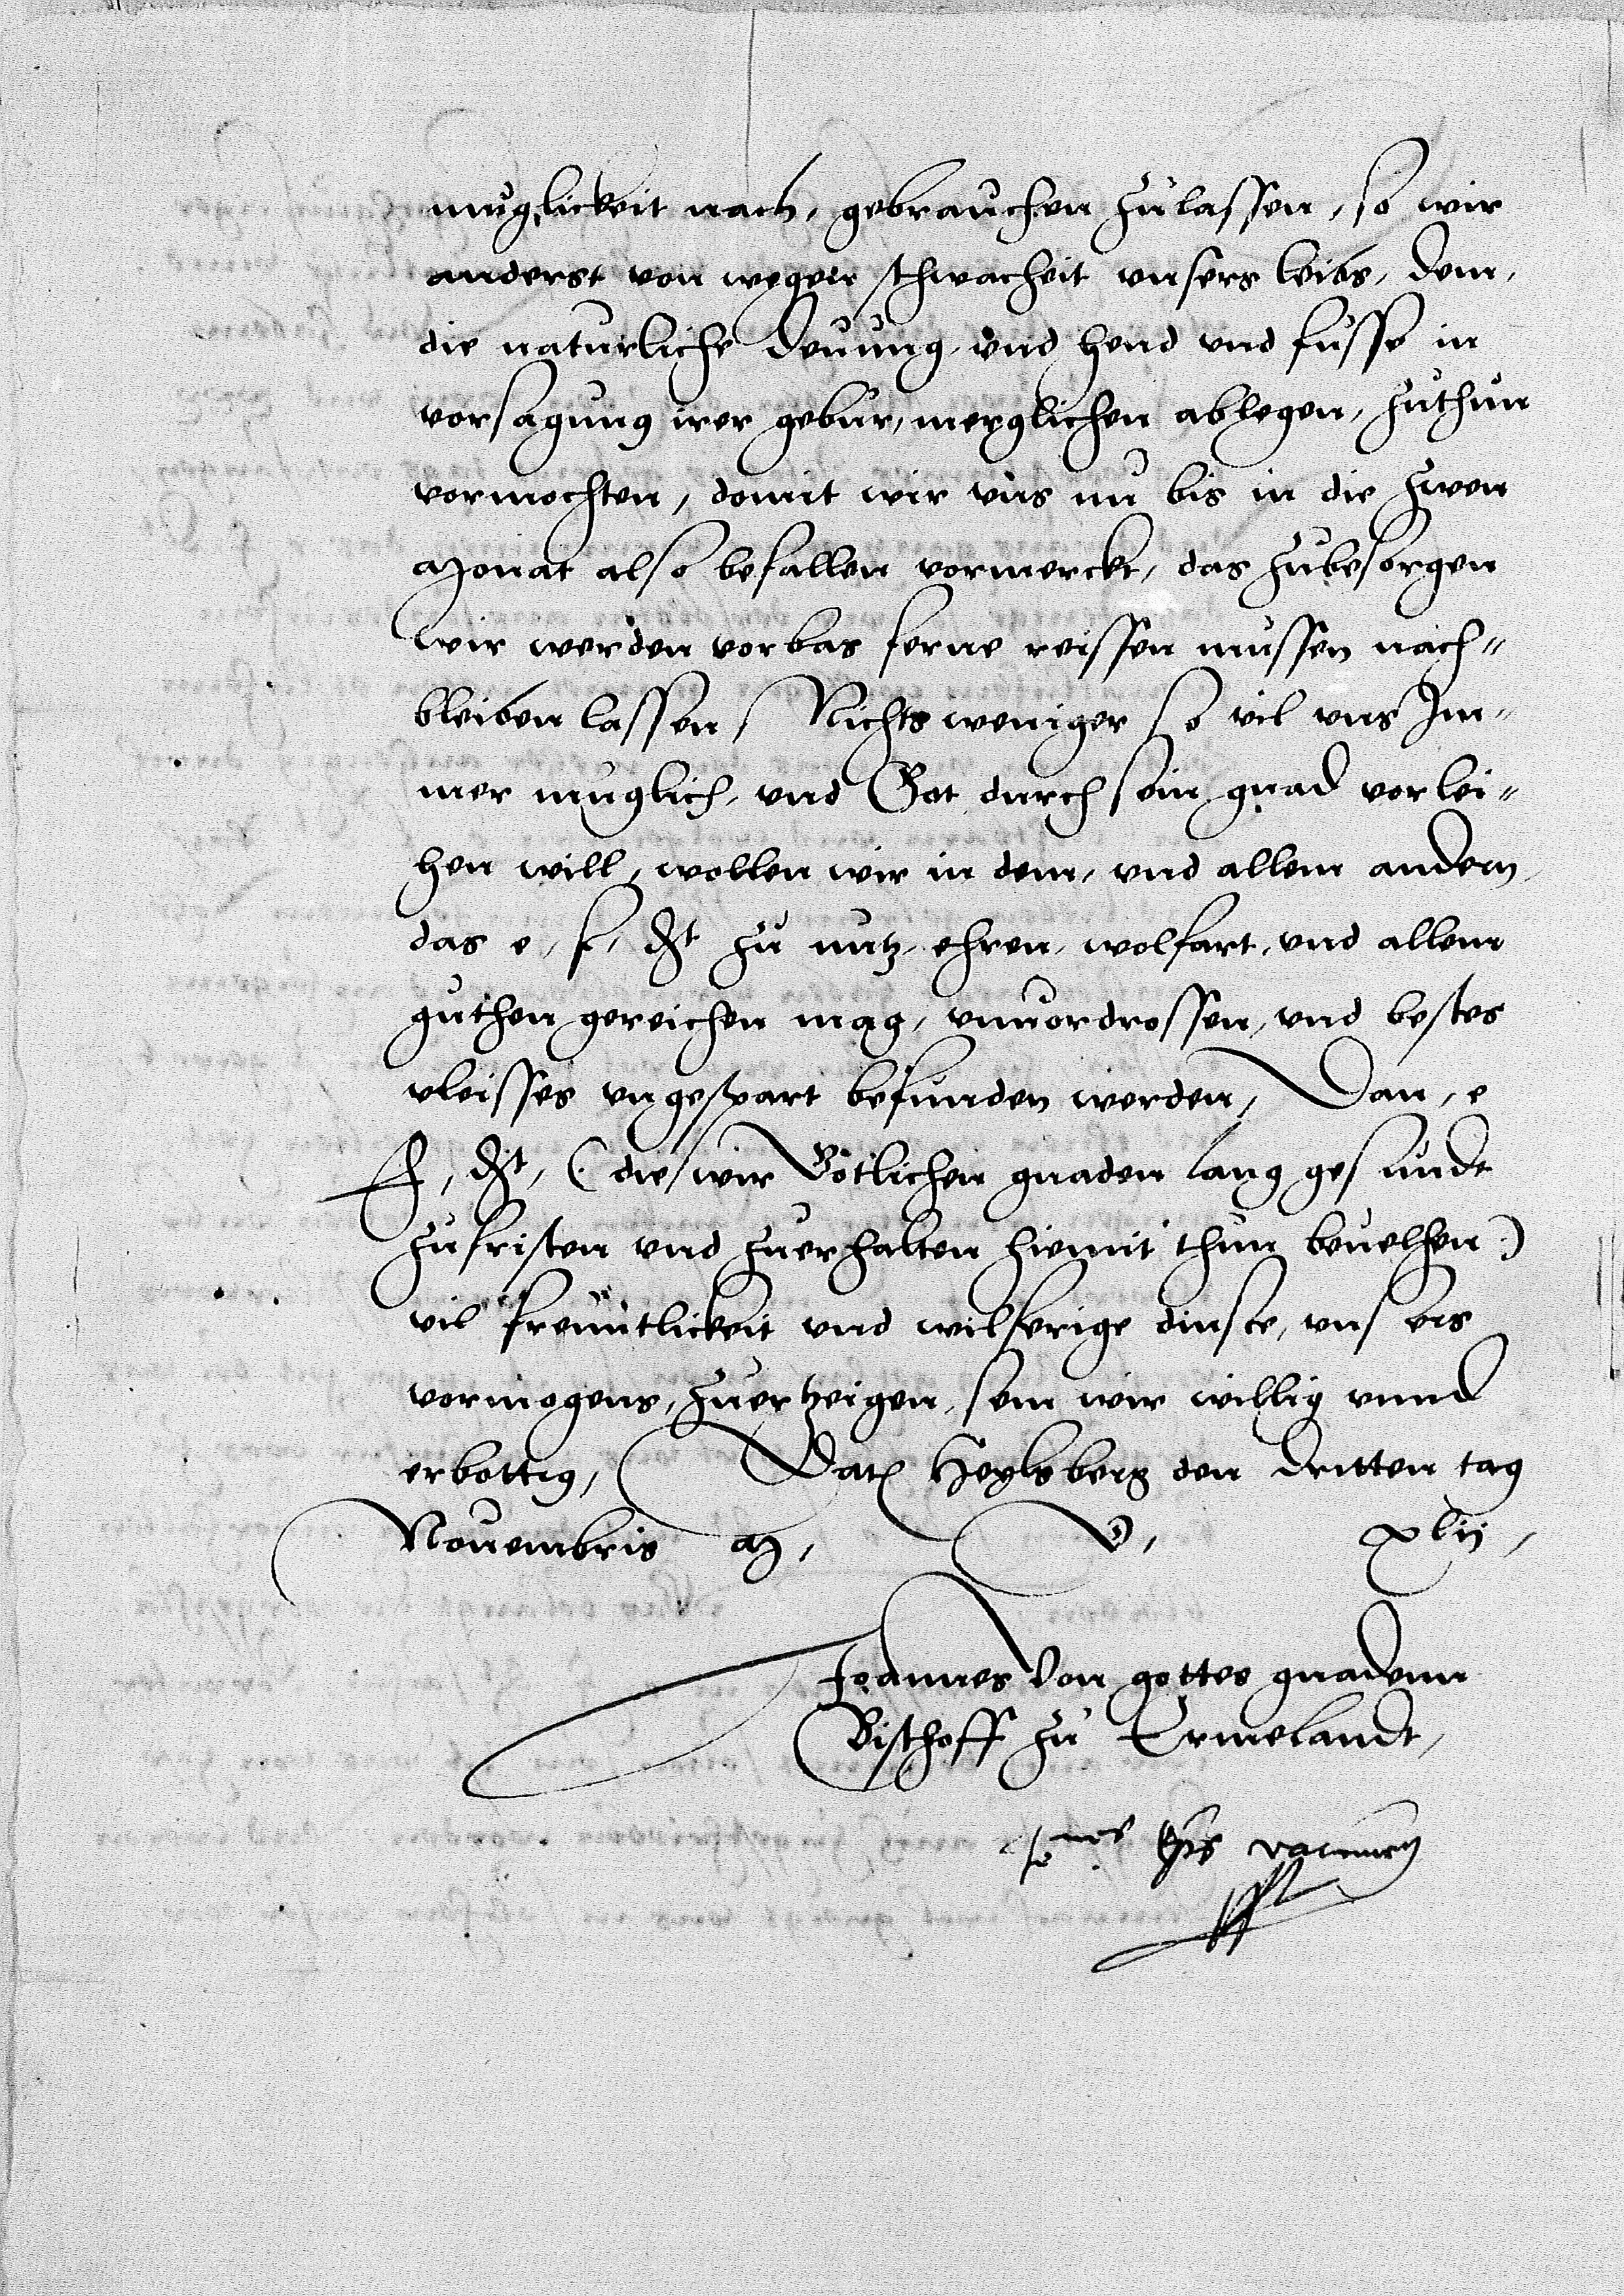 muglickeit nach, gebrauchen zulassen, so wir
anderst von wegen schwacheit unsers leibs, dem,
die naturliche deuung, und hend und fusse in
vorsagung irer gebur, merglichen ablegen, zuthun
vormochten, domit wir uns nu bis in die zwen
Monat also befallen vormerckt, das zubesorgen
wir werden vorbas ferne reissen mussen nach=
bleiben lassen, Nichts weniger so vil uns Im=
mer muglich, und Got durch sein gnad vorlei=
hen will, wollen wir in dem, und allem andern,
das e, f, dt zu nutz, ehren, wolfart, und allem
guthen gereichen mag, unuordrossen, und bestes
vleisses ungespart befunden werden, Dan, e
f, dt, (: die wir Gotlichen gnaden lang gesundt
zufristen und zuerhalten hiemit thun beuelhen :)
vil freuntlickeit und wilferige dinste, unsers
vormogens, zuertzeigen, sein wir willig unnd
erbottig, Dat Heylsberg den dritten tag
Nouembris M, D, xlij,
Joannes Von gottes gnadenn
Bischoff zu Ermelandt,
Jo eps warmien